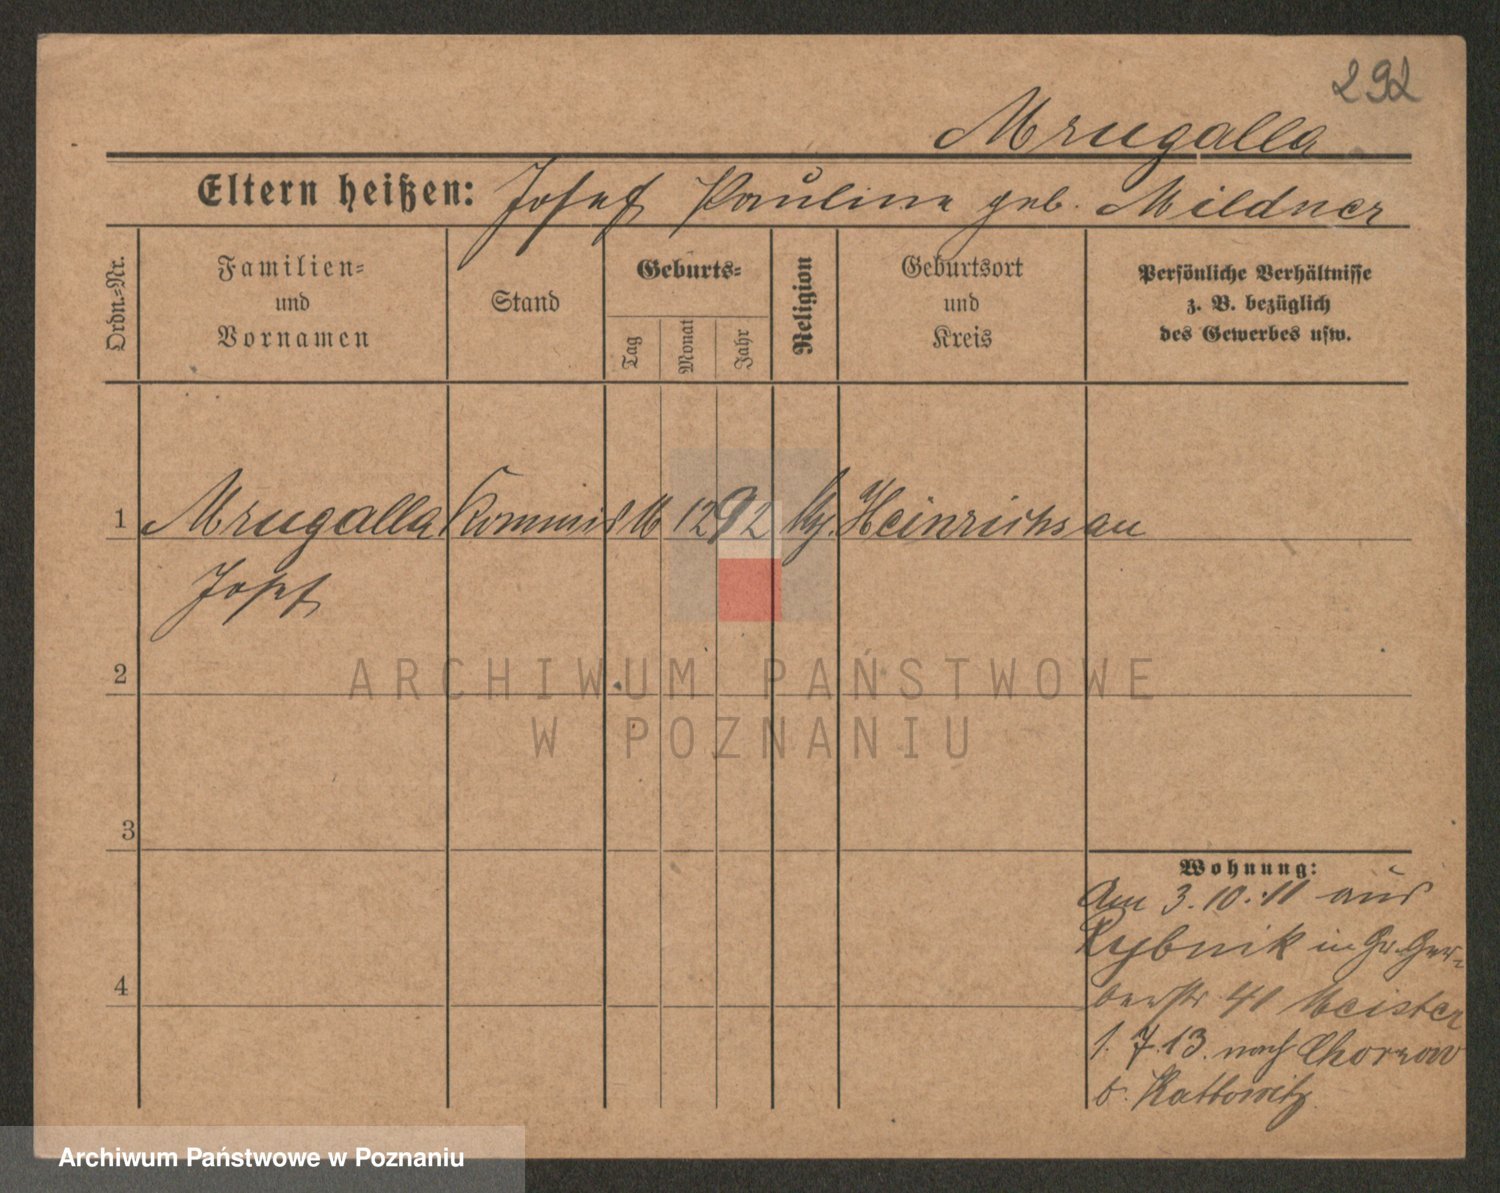 292
Mrugalla
Eltern heißen: Josef Pauline geb. Mildner
Ordn.=Nr.
Familien=
und
Vornamen
Stand
Geburts=
Tag
Monat
Jahr
Religion
Geburtsort
und
Kreis
Persönliche Verhältnisse
z. B. bezüglich
des Gewerbes usw.
1 Mrugalla Kommis 12 92 Heinrichsau
Josef
2
3
4
Wohnung:
Am 3.10.11 aus
Rybnik in Gr. Ger-
berstr 41 Meister
1.7.13. nach Chorzow
b. Kattowitz
ARCHIWUM PAŃSTWOWE
W POZNANIU
Archiwum Państwowe w Poznaniu